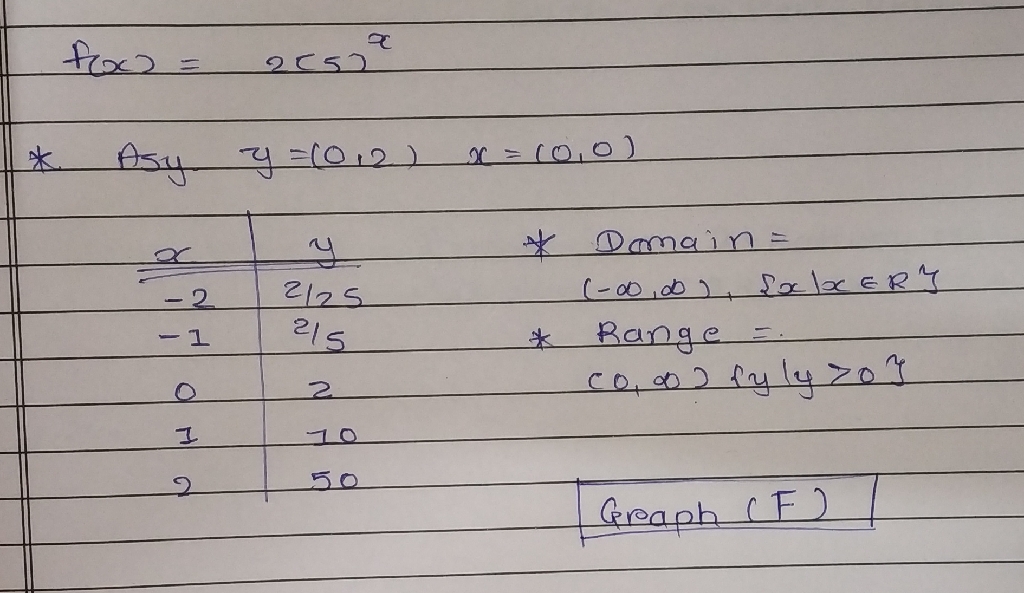 f(x) = 2(5)^x
* Asy y=(0,2) x=(0,0)
x y
-2 2/25
-1 2/5
0 2
1 10
2 50
* Domain =
(-∞,∞), {x|x∈R}
* Range =.
(0,∞) {y|y>0}
Graph (F)